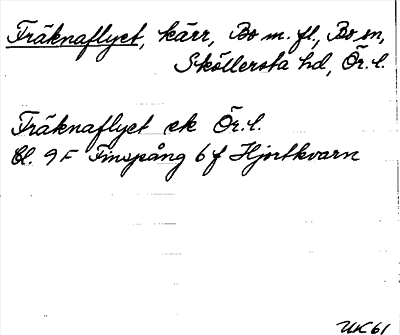 Träknaflyet, kärr, Bo m. fl., Bo sn,
Sköllersta hd, Ör. l.
Träknaflyet ek Ör. l.
Bl. 9 F Finspång 6 f Hjortkvarn
UK 61